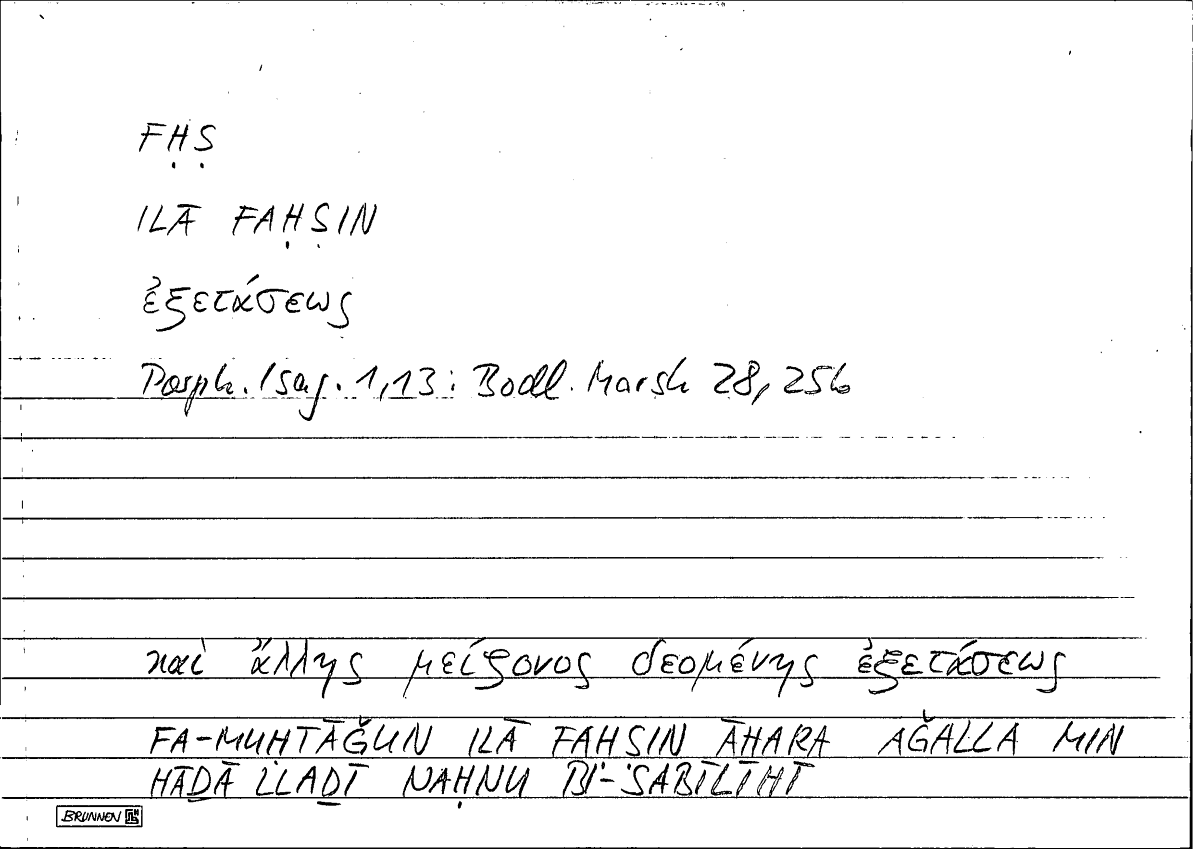 FḤṢ
ILĀ FAḤṢIN
ἐξετάσεως
Porph. Isag. 1,13: Bodl. Marsh 28, 25b
καὶ ἄλλης μείζονος δεομένης ἐξετάσεως
FA-MUḤTĀǦUN ILĀ FAḤṢIN ĀḪARA AǦALLA MIN
HĀḎĀ LLAḎĪ NAḤNU BI-SABĪLIHĪ
BRUNNEN